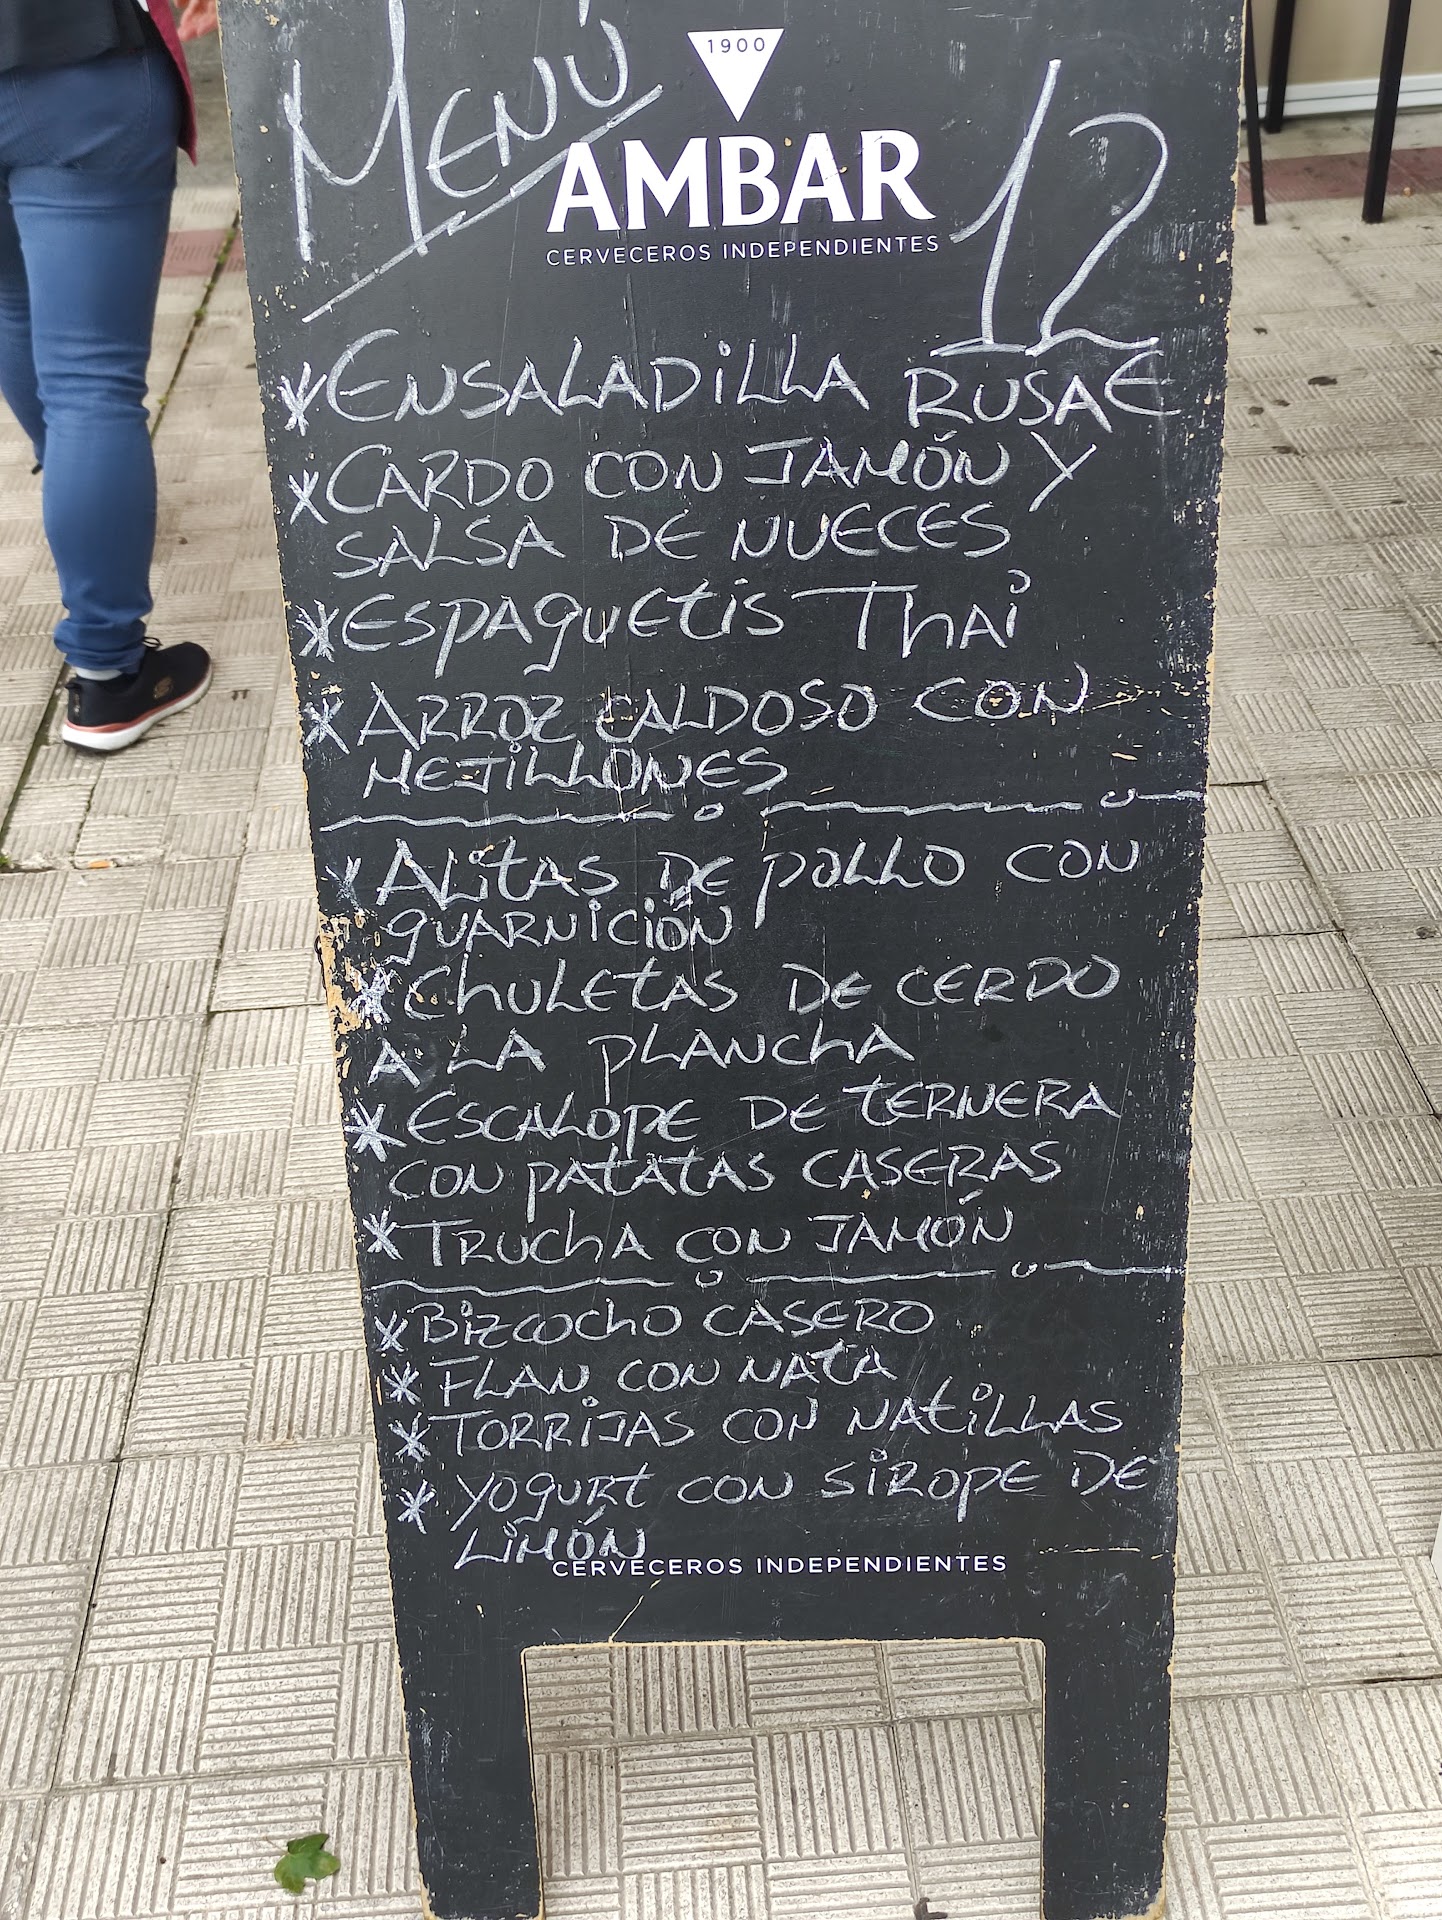 MENÚ
1900
AMBAR
CERVECEROS INDEPENDIENTES
12
*ENSALADILLA RUSA €
*CARDO CON JAMÓN Y
SALSA DE NUECES
*ESPAGUETIS THAI
*ARROZ CALDOSO CON
MEJILLONES
*ALITAS DE POLLO CON
GUARNICIÓN
*CHULETAS DE CERDO
A LA PLANCHA
*ESCALOPE DE TERNERA
CON PATATAS CASERAS
*TRUCHA CON JAMÓN
*BIZCOCHO CASERO
*FLAN CON NATA
*TORRIJAS CON NATILLAS
*YOGURT CON SIROPE DE
LIMÓN
CERVECEROS INDEPENDIENTES